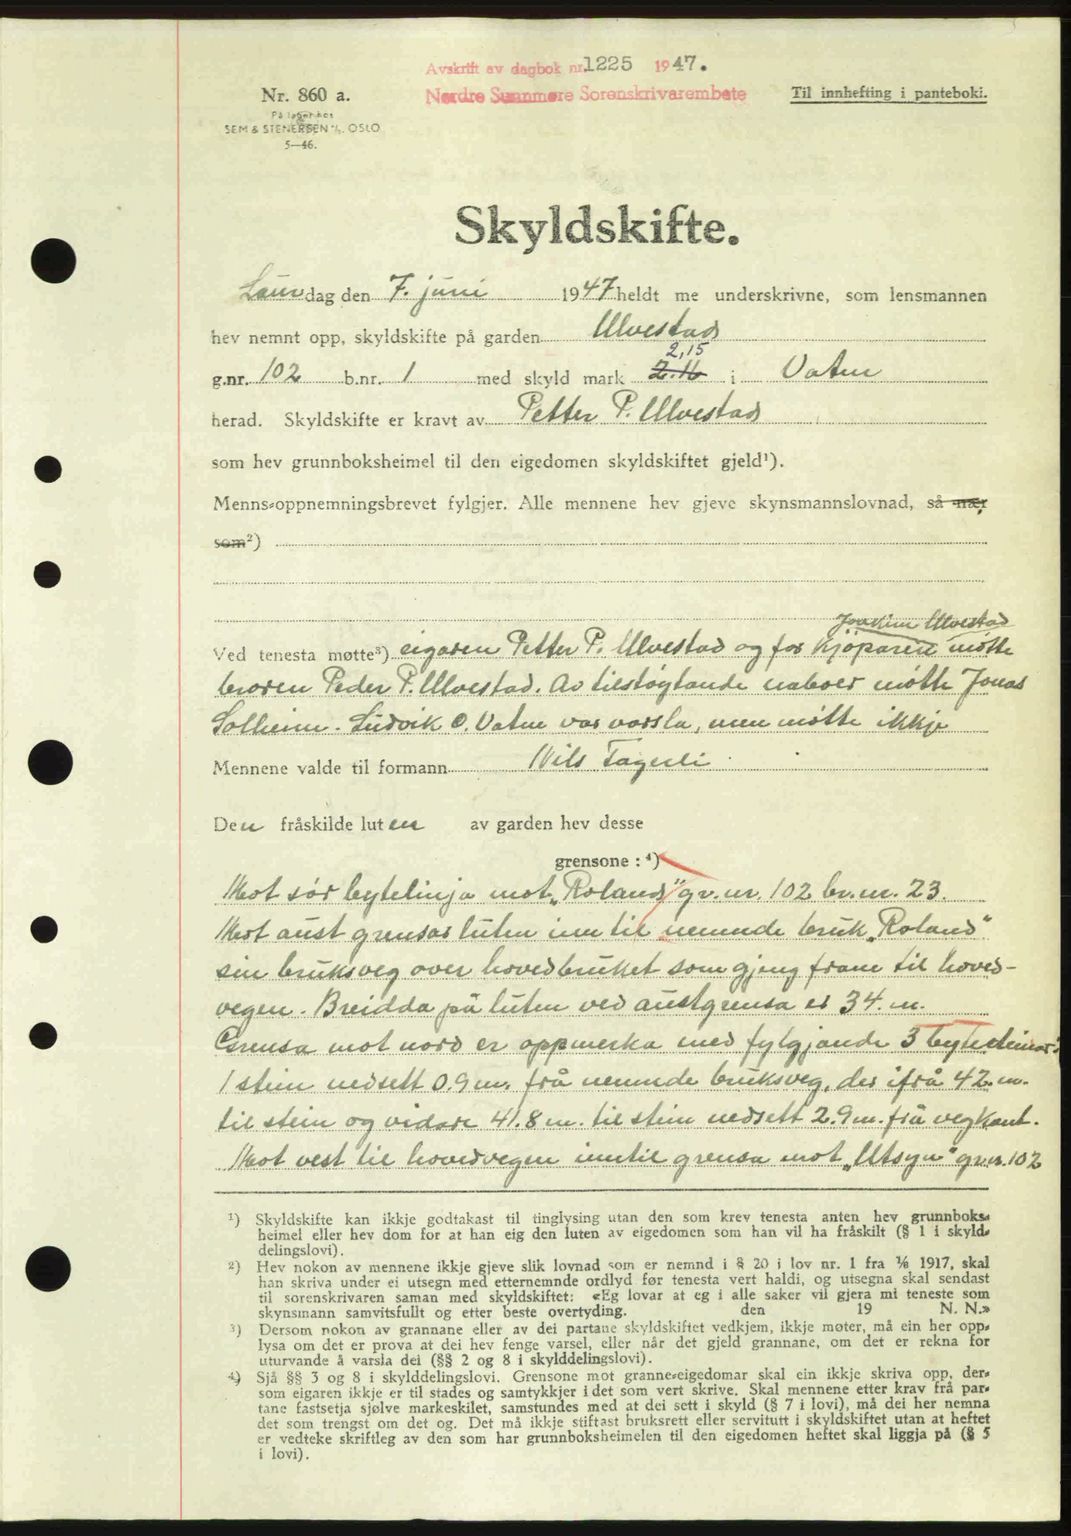 Avskrift av dagbok nr. 1225 1947.
Nordre Sunnmøre Sorenskrivarembete
Nr. 860 a.
Til innhefting i panteboki.
På lager hos
SEM & STENERSEN A/S. OSLO
5—46.
Skyldskifte.
Laurdag den 7. juni 1947 heldt me underskrivne, som lensmannen
hev nemnt opp, skyldskifte på garden Ulvestad
2,15
g.nr. 102 b.nr. 1 med skyld mark 2.16 i Vatne
herad. Skyldskifte er kravt av Petter P. Ulvestad
som hev grunnboksheimel til den eigedomen skyldskiftet gjeld¹).
Menns-oppnemningsbrevet fylgjer. Alle mennene hev gjeve skynsmannslovnad, så nær
som²)
Joakim Ulvestad
Ved tenesta møtte³) eigaren Petter P. Ulvestad og for kjøparen møtte
broren Peder P. Ulvestad. Av tilstøytande naboer møtte Jonas
Solheim. Ludvik O. Vatne var varsla, men møtte ikkje
Mennene valde til formann Nils Fagerli
Den fråskilde luten av garden hev desse
grensone: ⁴)
Mot sør bytelinja mot „Roland" gr.nr. 102 br.nr. 23.
Mot aust grensar luten inn til nemnde bruk „Roland"
sin bruksveg over hovedbruket som gjeng fram til hoved-
vegen. Breidda på luten ved austgrensa er 34. m.
Grensa mot nord er oppmerka med fylgjande 3 bytesteinar:
1 stein nedsett 0.9 m. frå nemnde bruksveg, der ifrå 42. m.
til stein og vidare 41.8 m. til stein nedsett 2.9 m. frå vegkant.
Mot vest til hovedvegen inntil grensa mot „Utsyn" gr.nr. 102
¹) Skyldskifte kan ikkje godtakast til tinglysing utan den som krev tenesta anten hev grunnboks-
heimel eller hev dom for at han eig den luten av eigedomen som han vil ha fråskilt (§ 1 i skyld-
delingslovi).
²) Hev nokon av mennene ikkje gjeve slik lovnad som er nemnd i § 20 i lov nr. 1 fra 1/6 1917, skal
han skriva under ei utsegn med etternemnde ordlyd før tenesta vert haldi, og utsegna skal sendast
til sorenskrivaren saman med skyldskiftet: «Eg lovar at eg i alle saker vil gjera mi teneste som
skynsmann samvitsfullt og etter beste overtyding. den 19 N. N.»
³) Dersom nokon av grannane eller av dei partane skyldskiftet vedkjem, ikkje møter, må ein her opp-
lysa om det er prova at dei hev fenge varsel, eller når det gjeld grannane, om det er rekna for
uturvande å varsla dei (§§ 2 og 8 i skylddelingslovi).
⁴) Sjå §§ 3 og 8 i skylddelingslovi. Grensone mot granne-eigedomar skal ein ikkje skriva opp, der-
som eigaren ikkje er til stades og samtykkjer i det som vert skrive. Skal mennene etter krav frå par-
tane fastsetja sjølve markeskilet, samstundes med at dei sett i skyld (§ 7 i lovi), må dei her nemna
det som trengst om det og. Det må ikkje stiftast bruksrett eller servitutt i skyldskiftet utan at heftet
er vedteke skriftleg av den som har grunnboksheimelen til den eigedomen heftet skal liggja på (§ 5
i lovi).